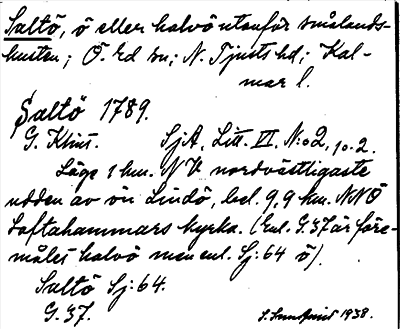 Saltö, ö eller halvö utanför smålands-
kusten; Ö. Ed sn; N. Tjusts hd; Kal-
mar l.
Saltö 1789.
G. Klint. SjA, Litt. VI. N:o 2, 10.2.
Läge 1 km. NV nordvästligaste
udden av ön Lindö, bel. 9,9 km. NNÖ
Loftahammars kyrka. (Enl. G.37 är före-
målet halvö men enl. Sj:64 ö).
Saltö Sj:64.
G.37.
1938.